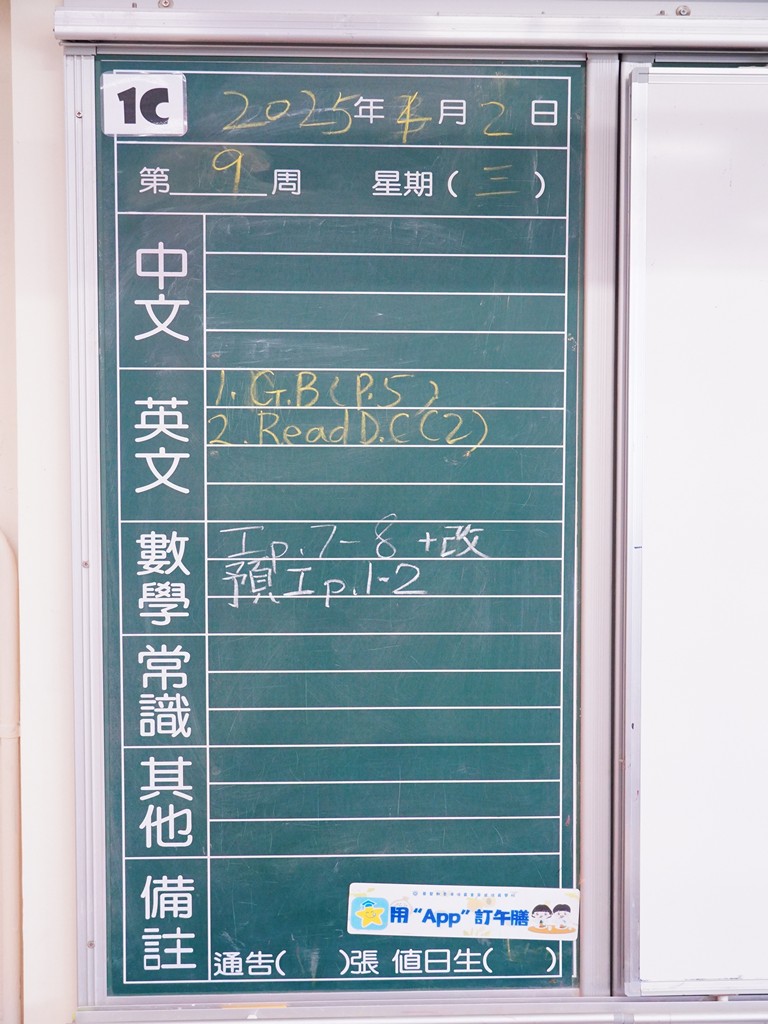 1C
2025年4月2日
第9周 星期(三)
中文
英文
1. G.B (P.5)
2. Read D.C (2)
數學
工p.7-8 +改
預工p.1-2
常識
其他
備註
用“App”訂午膳
通告( )張 值日生( )